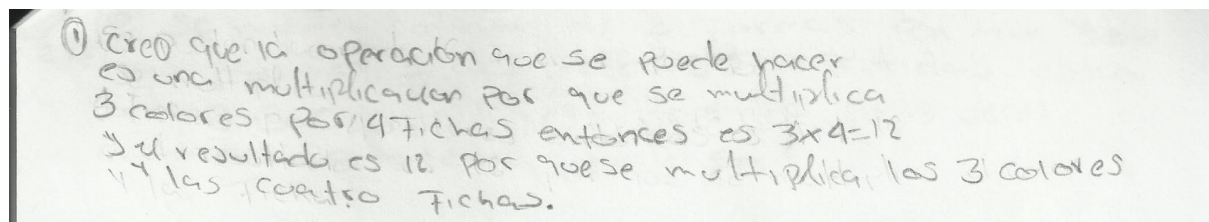 ① Creo que la operación que se puede hacer
es una multiplicacion por que se multiplica
3 colores por 4 Fichas entonces es 3x4=12
y el resultado es 12 por que se multiplica los 3 colores
y las cuatro Fichas.